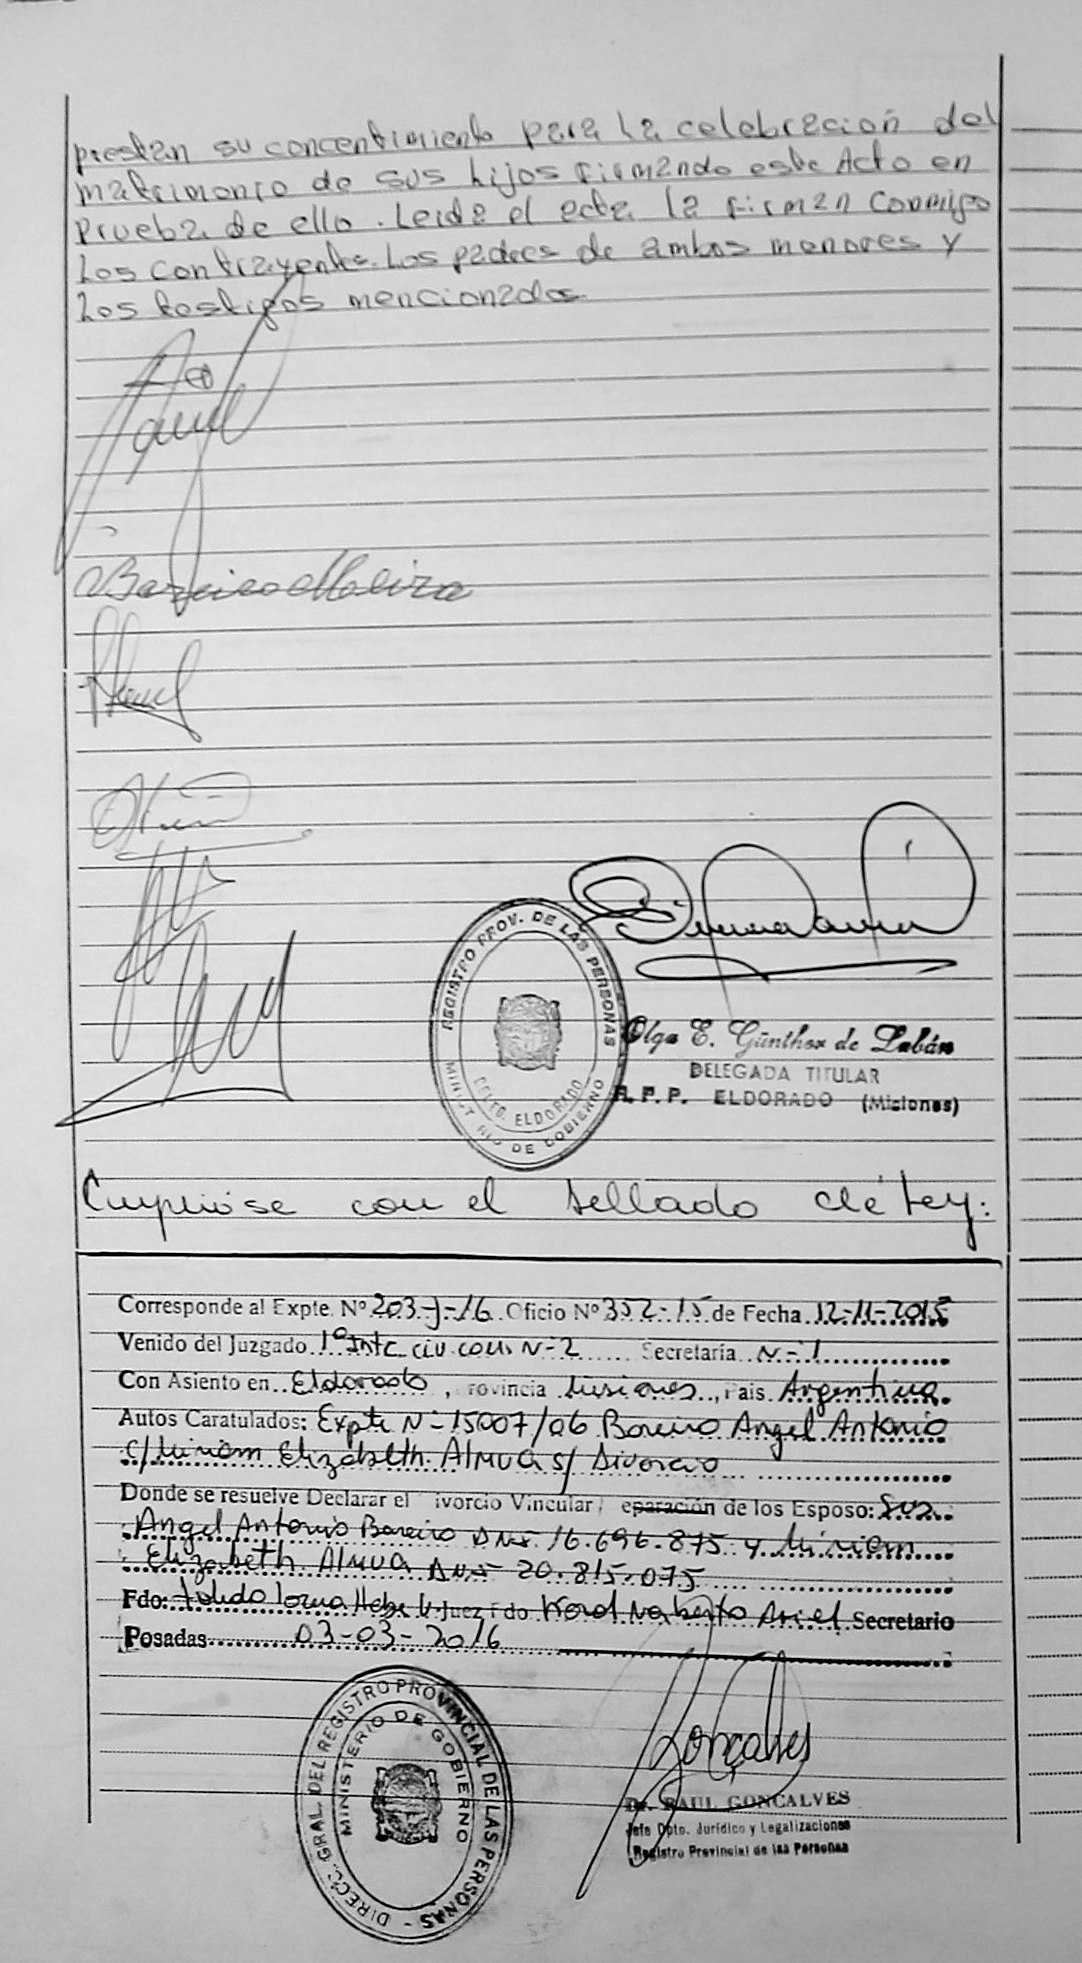 prestan su concentimiento para la celebracion del
matrimonio de sus hijos firmando este Acto en
prueba de ello. Leida el acta la firman conmigo
Los contrayentes. Los padres de ambos menores y
Los testigos mencionados.
REGISTRO PROV. DE LAS PERSONAS
DELEG. ELDORADO
DE GOBIERNO
Olga E. Günther de Labán
DELEGADA TITULAR
R. P. P. ELDORADO (Misiones)
Cumpliose con el sellado de Ley:
Corresponde al Expte. Nº 203-J-16 Oficio Nº 352-15 de Fecha 12-11-2015
Venido del Juzgado 1º Intc civ com N-2 Secretaría N-1
Con Asiento en Eldorado, rovincia Misiones, Pais Argentina
Autos Caratulados: Expte N-15007/06 Boreiro Angel Antonio
c/ Miriam Elizabeth s/ Divorcio
Donde se resuelve Declarar el ivorcio Vincular/ eparación de los Esposo: Sus
Angel Antonio Boreiro DNI 16.696.875 y Miriam
Elizabeth DNI 20.815.075
Fdo: Juez Fdo Norberto Ariel Secretario
Posadas 03-03-2016
DIRECC. GRAL. DEL REGISTRO PROVINCIAL DE LAS PERSONAS -
MINISTERIO DE GOBIERNO
Gonçalves
Dr. RAUL GONCALVES
Jefe Dpto. Jurídico y Legalizaciones
Registro Provincial de las Personas